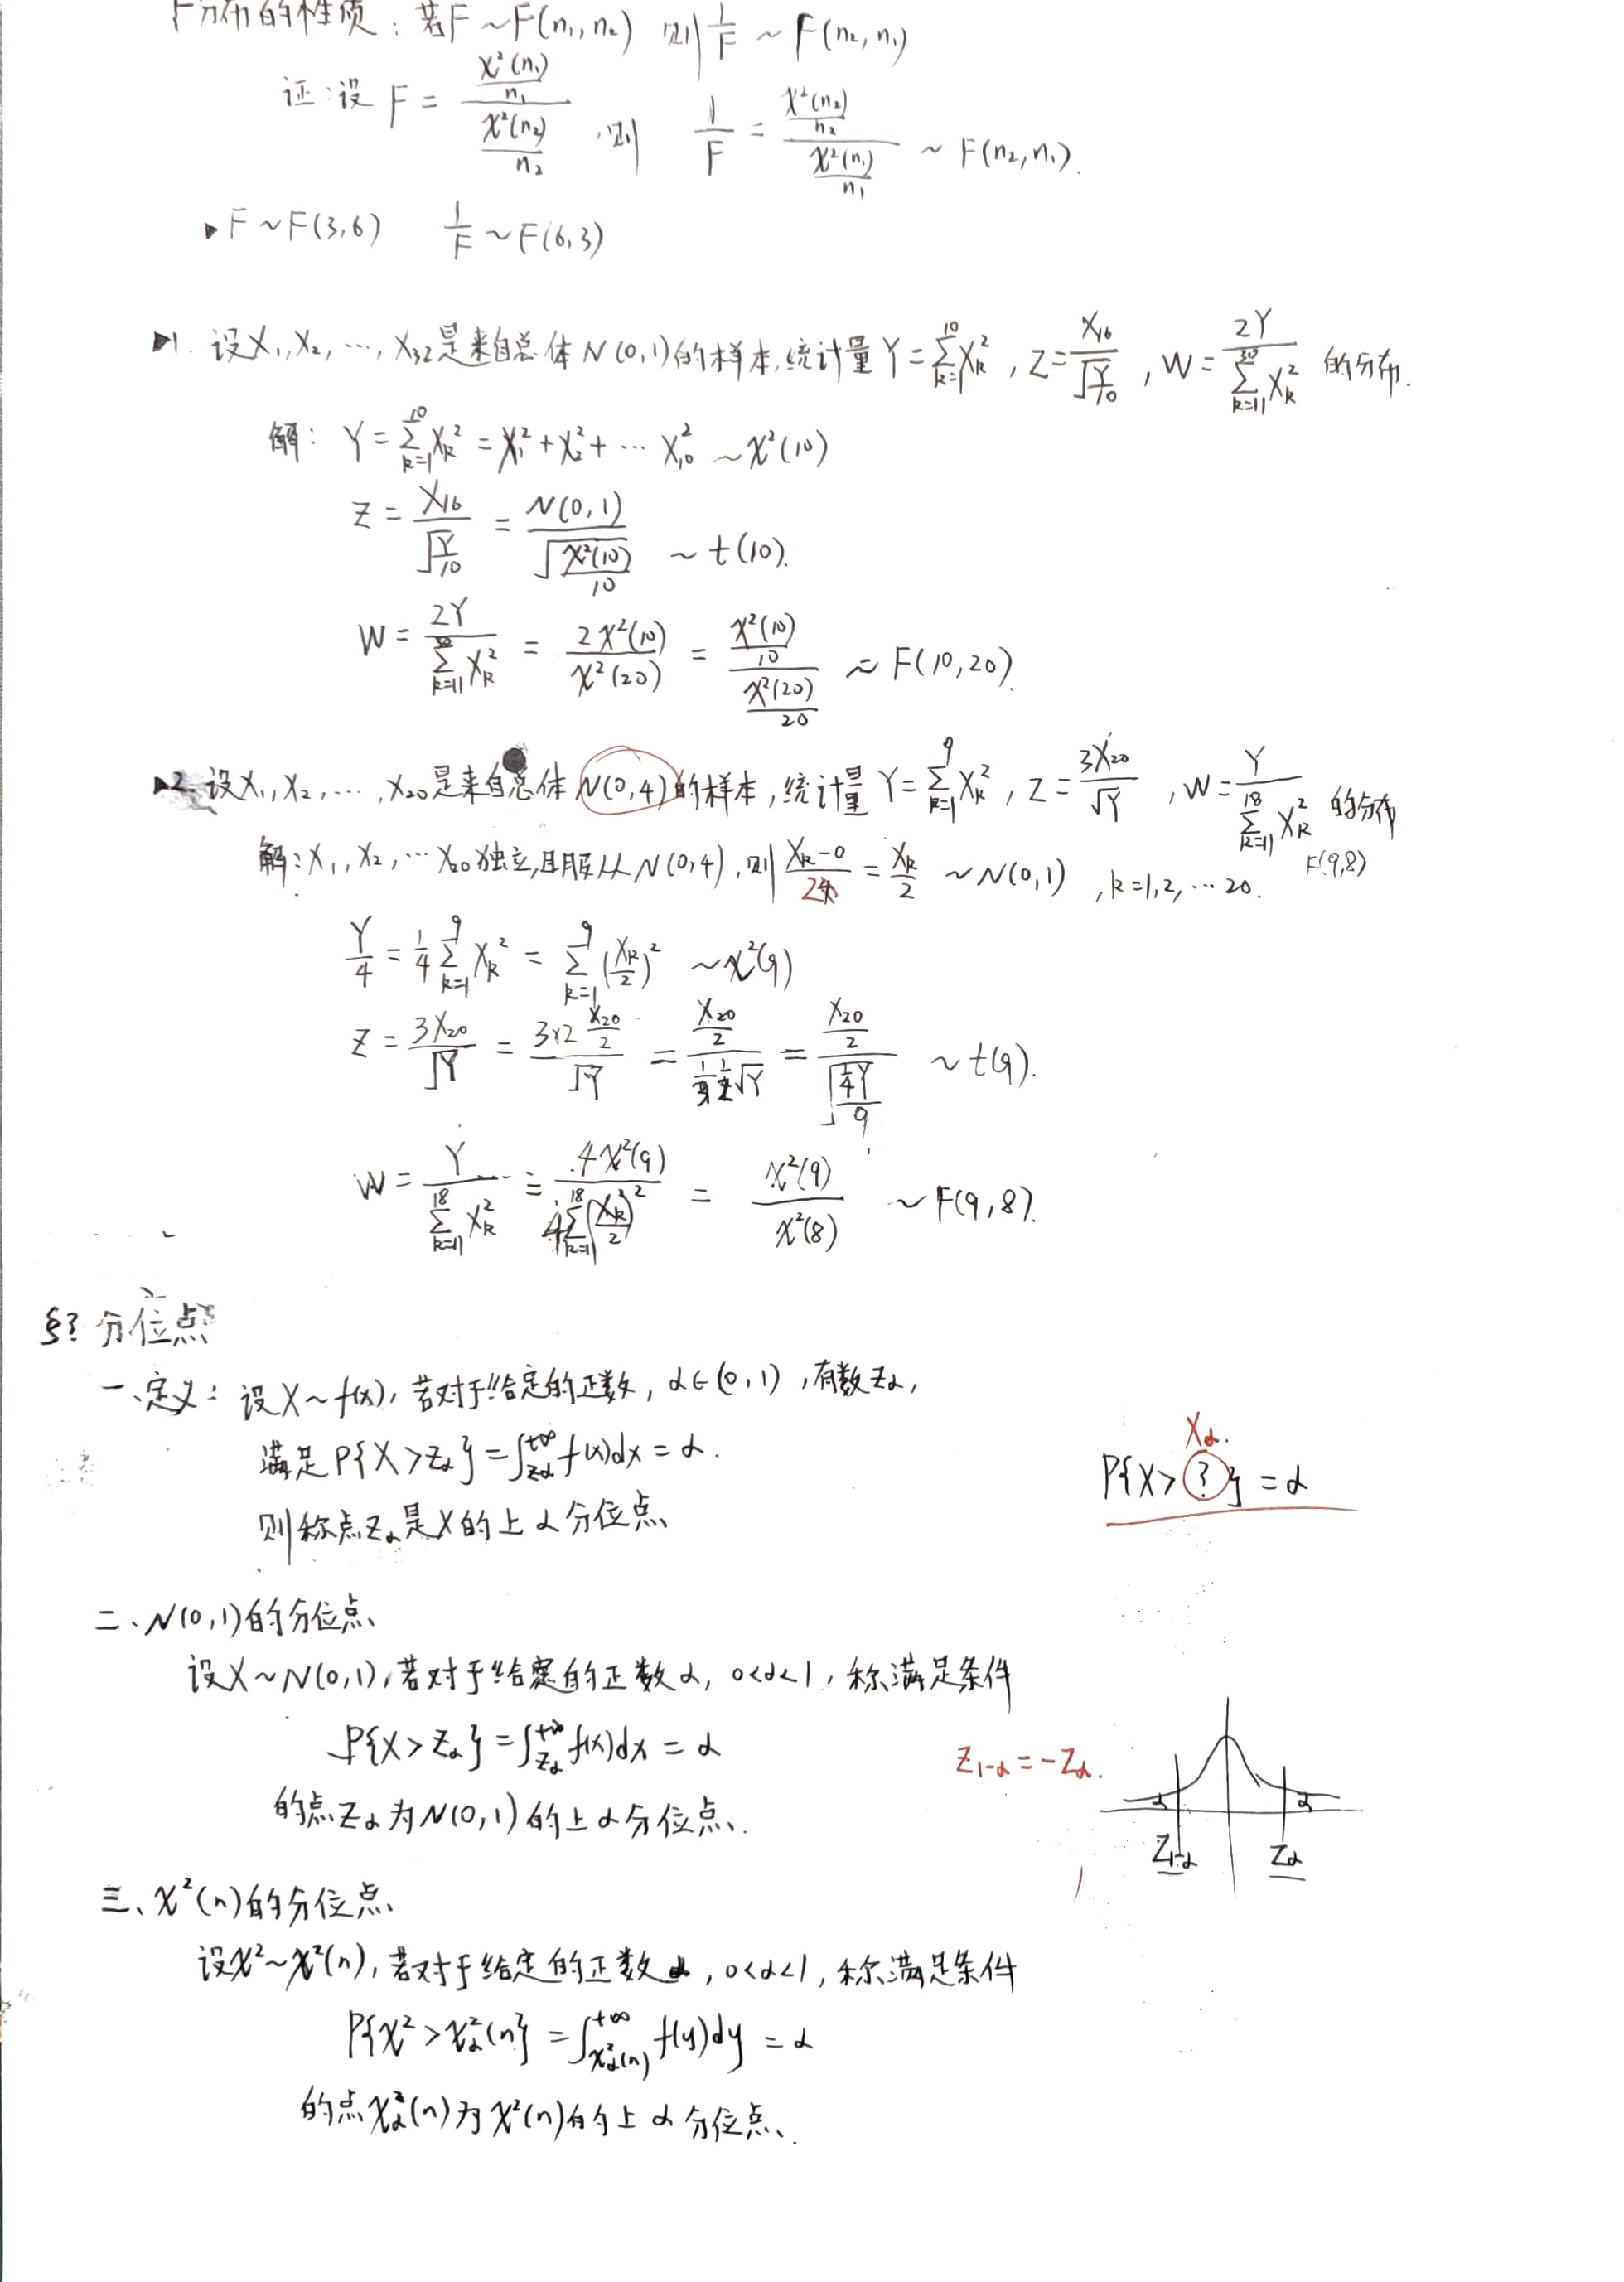 F分布的性质：若F~F(n₁,n₂) 则 1/F ~ F(n₂,n₁)
证：设 F = (χ²(n₁)/n₁)/(χ²(n₂)/n₂)，则 1/F = (χ²(n₂)/n₂)/(χ²(n₁)/n₁) ~ F(n₂,n₁).
▸F~F(3,6) 1/F~F(6,3)
▸1. 设X₁,X₂,…,X₃₂是来自总体N(0,1)的样本,统计量Y=∑_{k=1}^{10}X_k², Z=X₁₆/√(Y/10), W=2Y/∑_{k=11}^{30}X_k² 的分布.
解：Y=∑_{k=1}^{10}X_k²=X₁²+X₂²+…X₁₀² ~χ²(10)
Z=X₁₆/√(Y/10)=N(0,1)/√(χ²(10)/10) ~ t(10).
W=2Y/∑_{k=11}^{30}X_k² = 2χ²(10)/χ²(20) = (χ²(10)/10)/(χ²(20)/20) ~ F(10,20).
▸2. 设X₁,X₂,…,X₂₀是来自总体N(0,4)的样本,统计量Y=∑_{k=1}^{9}X_k², Z=3X₂₀/√Y, W=Y/∑_{k=11}^{18}X_k² 的分布
F(9,8)
解：X₁,X₂,…X₂₀独立,且服从N(0,4),则 (X_k-0)/2=X_k/2 ~N(0,1), k=1,2,…20.
Y/4=1/4∑_{k=1}^{9}X_k²=∑_{k=1}^{9}(X_k/2)² ~χ²(9)
Z=3X₂₀/√Y=(3×2 X₂₀/2)/√Y=(X₂₀/2)/(1/3 1/2√Y)=(X₂₀/2)/√(¼Y/9) ~t(9).
W=Y/∑_{k=11}^{18}X_k²=4χ²(9)/4∑_{k=11}^{18}(X_k/2)²=χ²(9)/χ²(8) ~F(9,8).
§3 分位点
一、定义：设X~f(x),若对于给定的正数,α∈(0,1),有数z_α,
满足P{X>z_α}=∫_{z_α}^{+∞}f(x)dx=α.
X_α.
P{X>?}=α
则称点z_α是X的上α分位点
二、N(0,1)的分位点
设X~N(0,1),若对于给定的正数α, 0<α<1,称满足条件
P{X>z_α}=∫_{z_α}^{+∞}f(x)dx=α
z_{1-α}=-z_α.
α α
z_{1-α} z_α
的点z_α为N(0,1)的上α分位点.
三、χ²(n)的分位点
设χ²~χ²(n),若对于给定的正数α, 0<α<1,称满足条件
P{χ²>χ_α²(n)}=∫_{χ_α²(n)}^{+∞}f(y)dy=α
的点χ_α²(n)为χ²(n)的上α分位点.